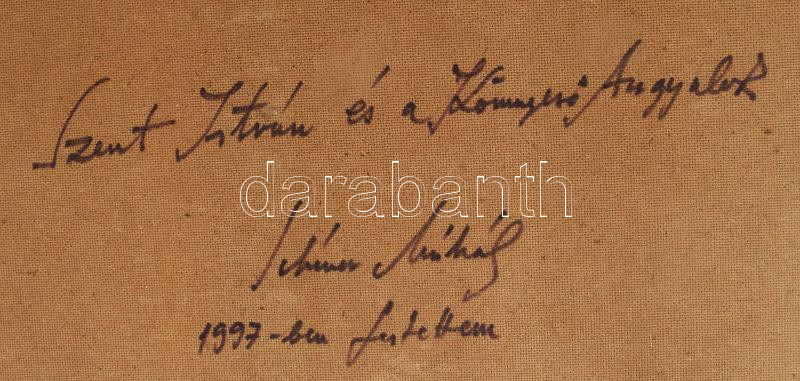 Szent István és a Könnyező Angyalok
darabanth
Schéner Mihály
1997-ben festettem